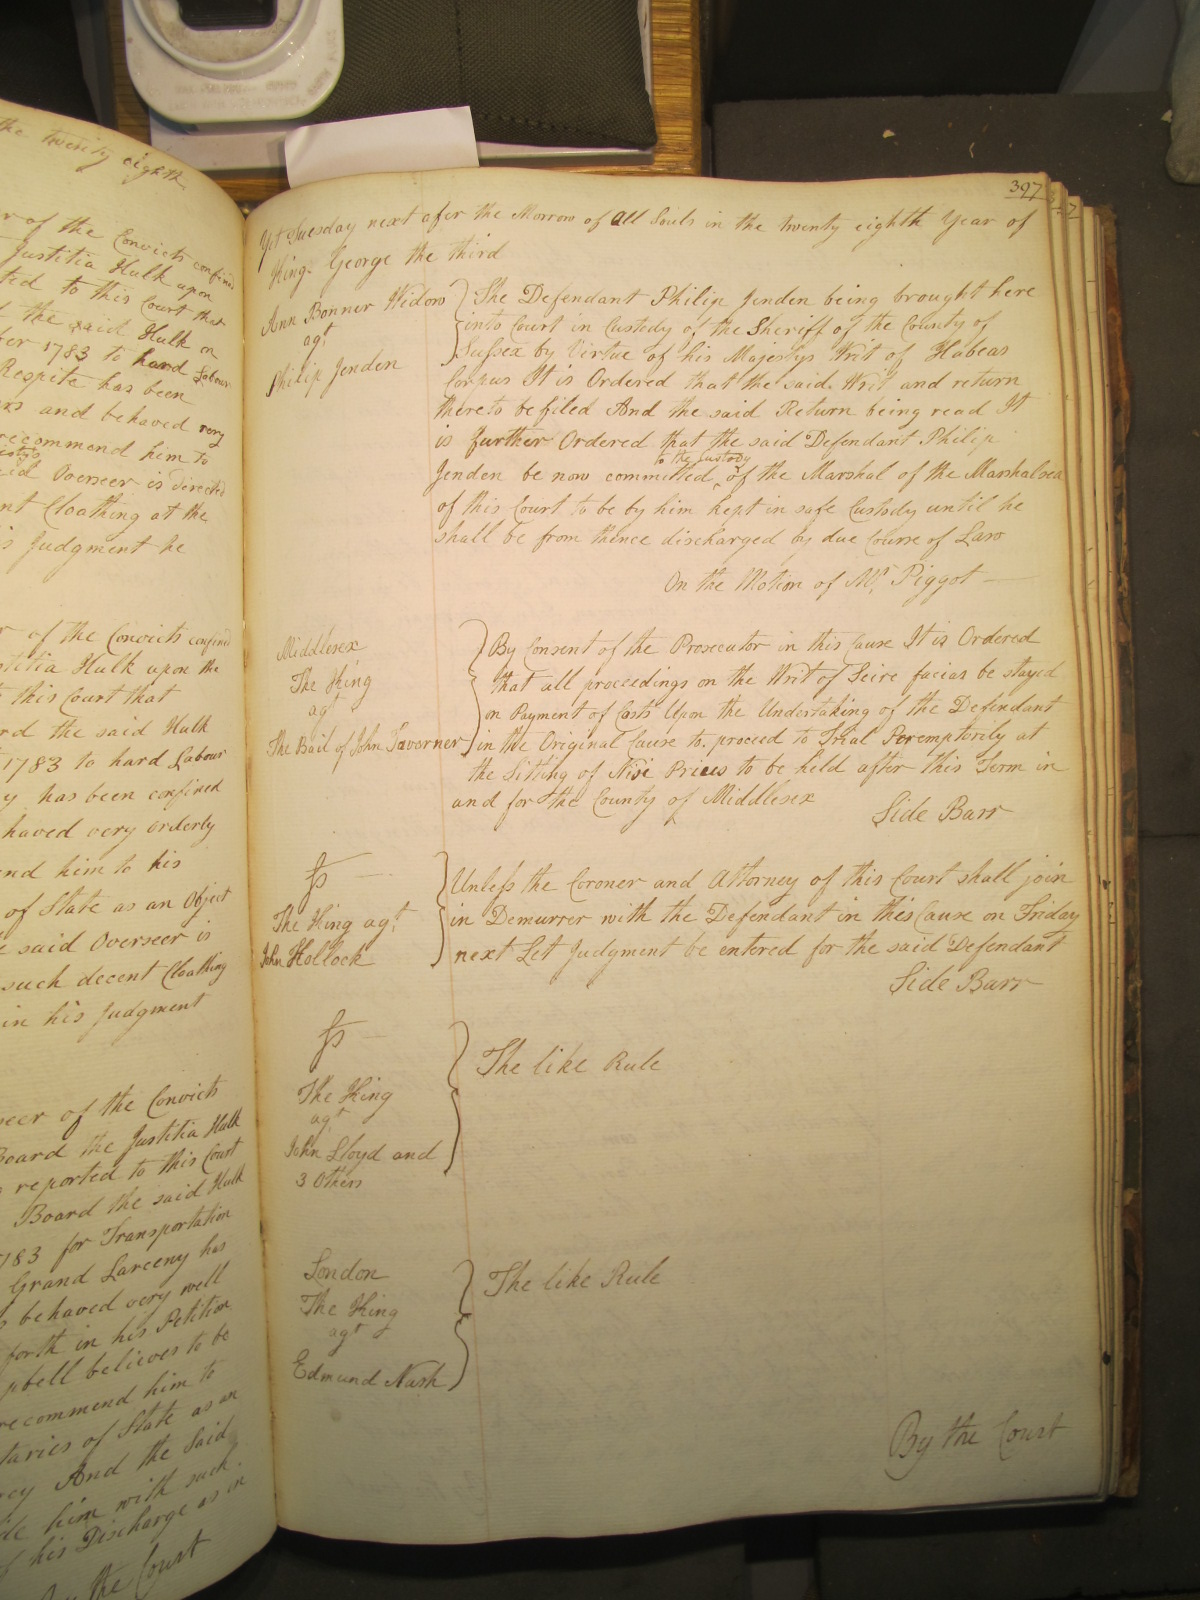 the twenty eighth
r of the Convicts confined
Justitia Hulk upon
ted to this Court that
the said Hulk on
ber 1783 to hard Labour
Respite has been
and behaved very
recommend him to
Overseer is directed
nt Cloathing at the
s Judgment he
r of the Convicts confined
stitia Hulk upon the
this Court that
rd the said Hulk
1783 to hard Labour
y has been confined
haved very orderly
nd him to his
of State as an Object
e said Overseer is
such decent Cloathing
in his Judgment
seer of the Convicts
Board the Justitia Hulk
reported to this Court
Board the said Hulk
783 for Transportation
Grand Larceny has
s behaved very well
forth in his Petition
pbell believes to be
recommend him to
taries of State as an
rcy And the Said
de him with such
f his Discharge as in
By the Court
397
Yet Tuesday next after the Morrow of All Souls in the twenty eighth Year of
King George the third
Ann Bonner Widow
agt
Philip Jenden
The Defendant Philip Jenden being brought here
into Court in Custody of the Sheriff of the County of
Sussex by Virtue of his Majestys Writ of Habeas
Corpus It is Ordered that the said Writ and return
thereto be filed And the said Return being read It
is further Ordered that the said Defendant Philip
to the custody
Jenden be now committed of the Marshal of the Marshalsea
of this Court to be by him kept in safe Custody until he
shall be from thence discharged by due Course of Law
On the Motion of Mr. Piggot
Middlesex
The King
agt
The Bail of John Tavorner
By Consent of the Prosecutor in this Cause It is Ordered
that all proceedings on the Writ of Scire facias be stayed
on Payment of Costs Upon the Undertaking of the Defendant
in the Original Cause to proceed to Trial Peremptorily at
the Sitting of Nisi Prius to be held after this Term in
and for the County of Middlesex
Side Barr
ss
The King agt
John Hollock
Unless the Coroner and Attorney of this Court shall join
in Demurrer with the Defendant in this Cause on Friday
next Let Judgment be entered for the said Defendant
Side Barr
ss
The King
agt
John Lloyd and
3 Others
The like Rule
London
The King
agt
Edmund Nash
The like Rule
By the Court